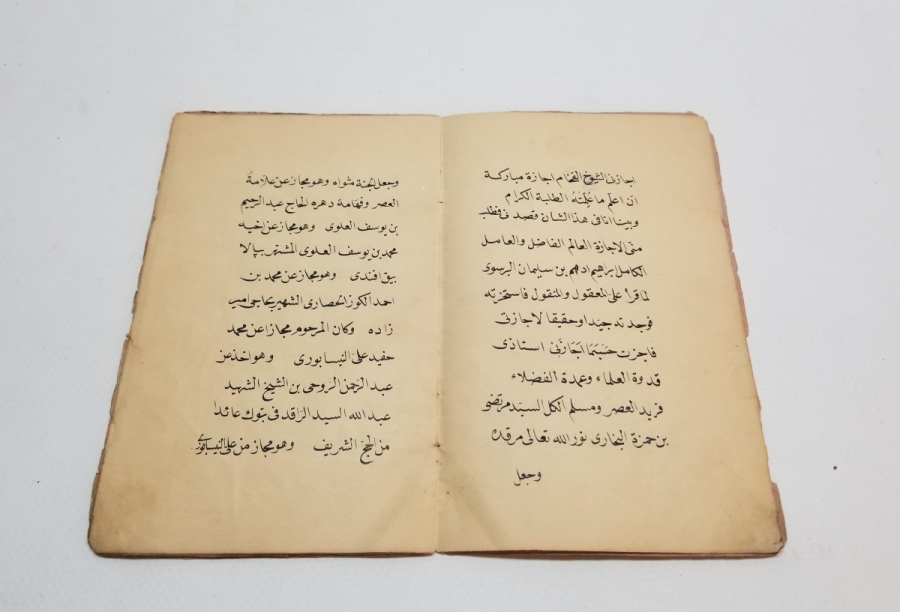 اجازنى الشيوخ الفخام اجازة مباركة
ان اعلم ما علمته الطلبة الكرام
وبينا انا فى هذا الشان قصدنى فطلب
منى الاجازة العالم الفاضل والعامل
الكامل ابرهيم ادهم بن سليمان البرسوى
لما قرأ على المعقول والمنقول فاستخرته
فوجدته جيدا وحقيقا لاجازتى
فاجزت حسبما اجازنى استاذى
قدوة العلماء وعمدة الفضلاء
فريد العصر ومسلم الكل السيد مرتضى
بن حمزة البخارى نور الله تعالى مرقده
وجعل
وجعل الجنة مثواه وهو مجاز عن علامة
العصر وفهامة دهره الحاج عبد الرحيم
بن يوسف العلوى وهو مجاز عن اخيه
محمد بن يوسف العلوى المشتهر ببالا
بيق افندى وهو مجاز عن محمد بن
احمد الكوز الحصارى الشهير بحاجى امير
زاده وكان المرحوم مجازا عن محمد
حفيد على النيسابورى وهو اخذ عن
عبد الرحمن الروحى بن الشيخ الشهيد
عبد الله السيد الراقد فى تبوك عائدا
من الحج الشريف وهو مجاز من على النيسابورى